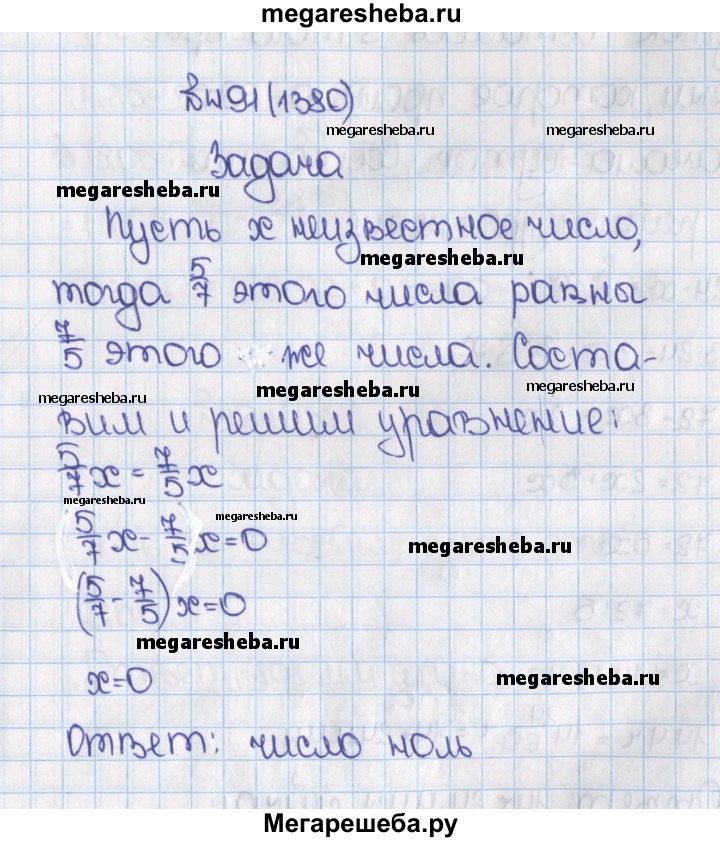 megaresheba.ru
Вш91(1380)
megaresheba.ru megaresheba.ru
Задача
megaresheba.ru
Пусть x неизвестное число,
megaresheba.ru
тогда 5/7 этого числа равны
7/5 этого же числа. Соста-
megaresheba.ru megaresheba.ru megaresheba.ru
вим и решим уравнение:
5/7x = 7/5x
megaresheba.ru megaresheba.ru
5/7x - 7/5x = 0
megaresheba.ru
(5/7 - 7/5)x = 0
megaresheba.ru
x = 0
megaresheba.ru
Ответ: число ноль
Мегарешеба.ру